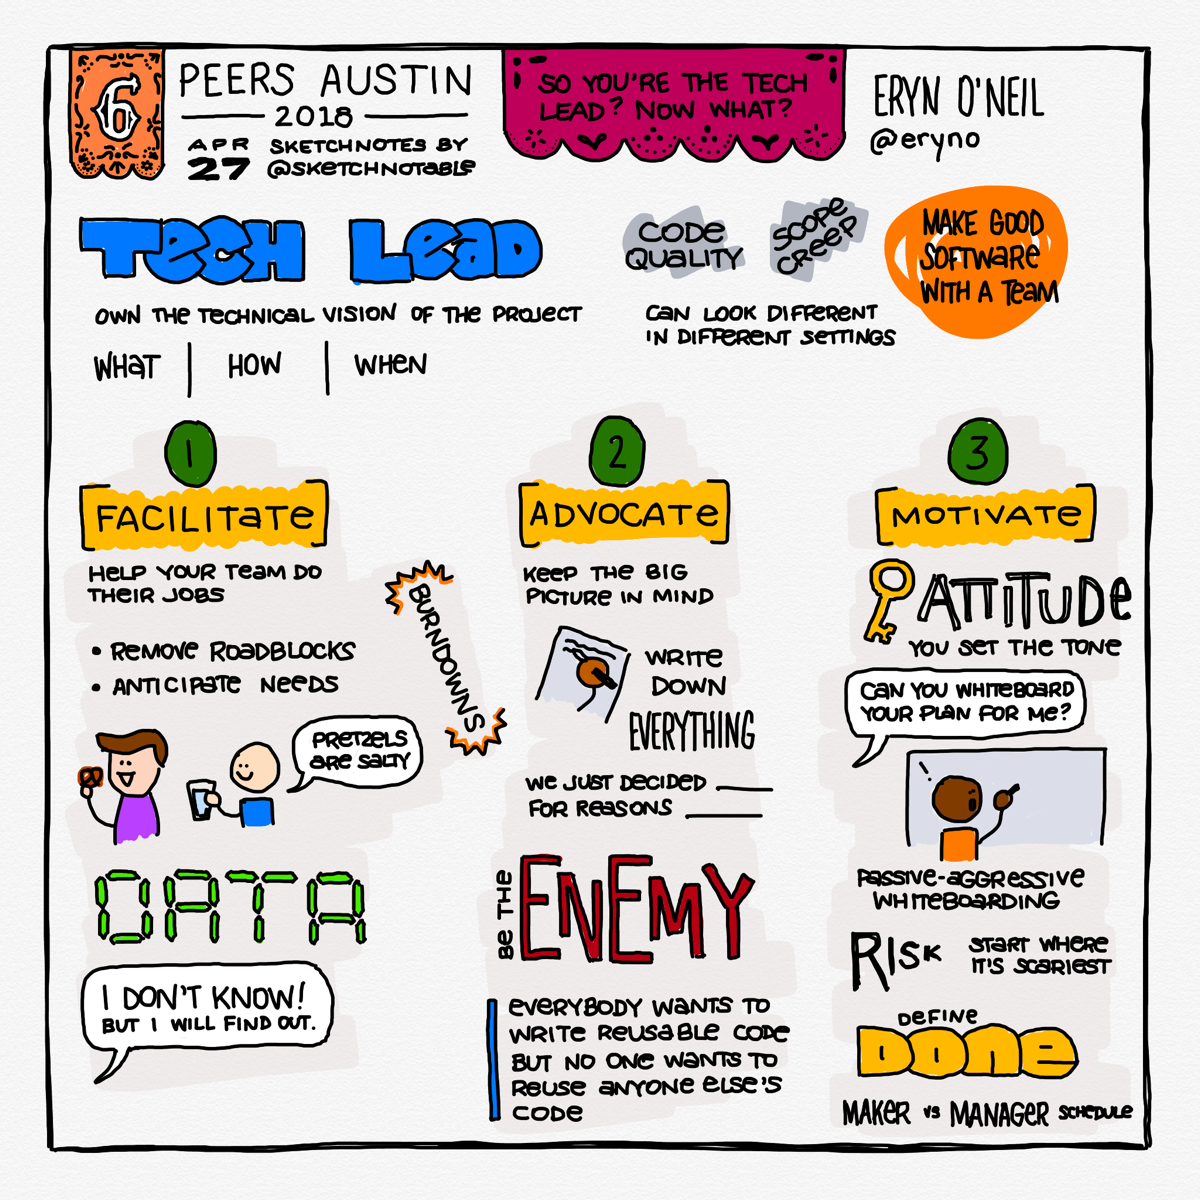 6
PEERS AUSTIN
2018
APR
27
SKETCHNOTES BY
@SKETCHNOTABLE
SO YOU'RE THE TECH
LEAD? NOW WHAT?
ERYN O'NEIL
@eryno
TECH LEAD
OWN THE TECHNICAL VISION OF THE PROJECT
WHAT | HOW | WHEN
CODE
QUALITY
SCOPE
CREEP
CAN LOOK DIFFERENT
IN DIFFERENT SETTINGS
MAKE GOOD
SOFTWARE
WITH A TEAM
1
FACILITATE
HELP YOUR TEAM DO
THEIR JOBS
• REMOVE ROADBLOCKS
• ANTICIPATE NEEDS
PRETZELS
ARE SALTY
BURNDOWNS
DATA
I DON'T KNOW!
BUT I WILL FIND OUT.
2
ADVOCATE
KEEP THE BIG
PICTURE IN MIND
WRITE
DOWN
EVERYTHING
WE JUST DECIDED ____
FOR REASONS ____
BE THE
ENEMY
EVERYBODY WANTS TO
WRITE REUSABLE CODE
BUT NO ONE WANTS TO
REUSE ANYONE ELSE'S
CODE
3
MOTIVATE
ATTITUDE
YOU SET THE TONE
CAN YOU WHITEBOARD
YOUR PLAN FOR ME?
PASSIVE-AGGRESSIVE
WHITEBOARDING
RISK
START WHERE
IT'S SCARIEST
DEFINE
DONE
MAKER VS MANAGER SCHEDULE